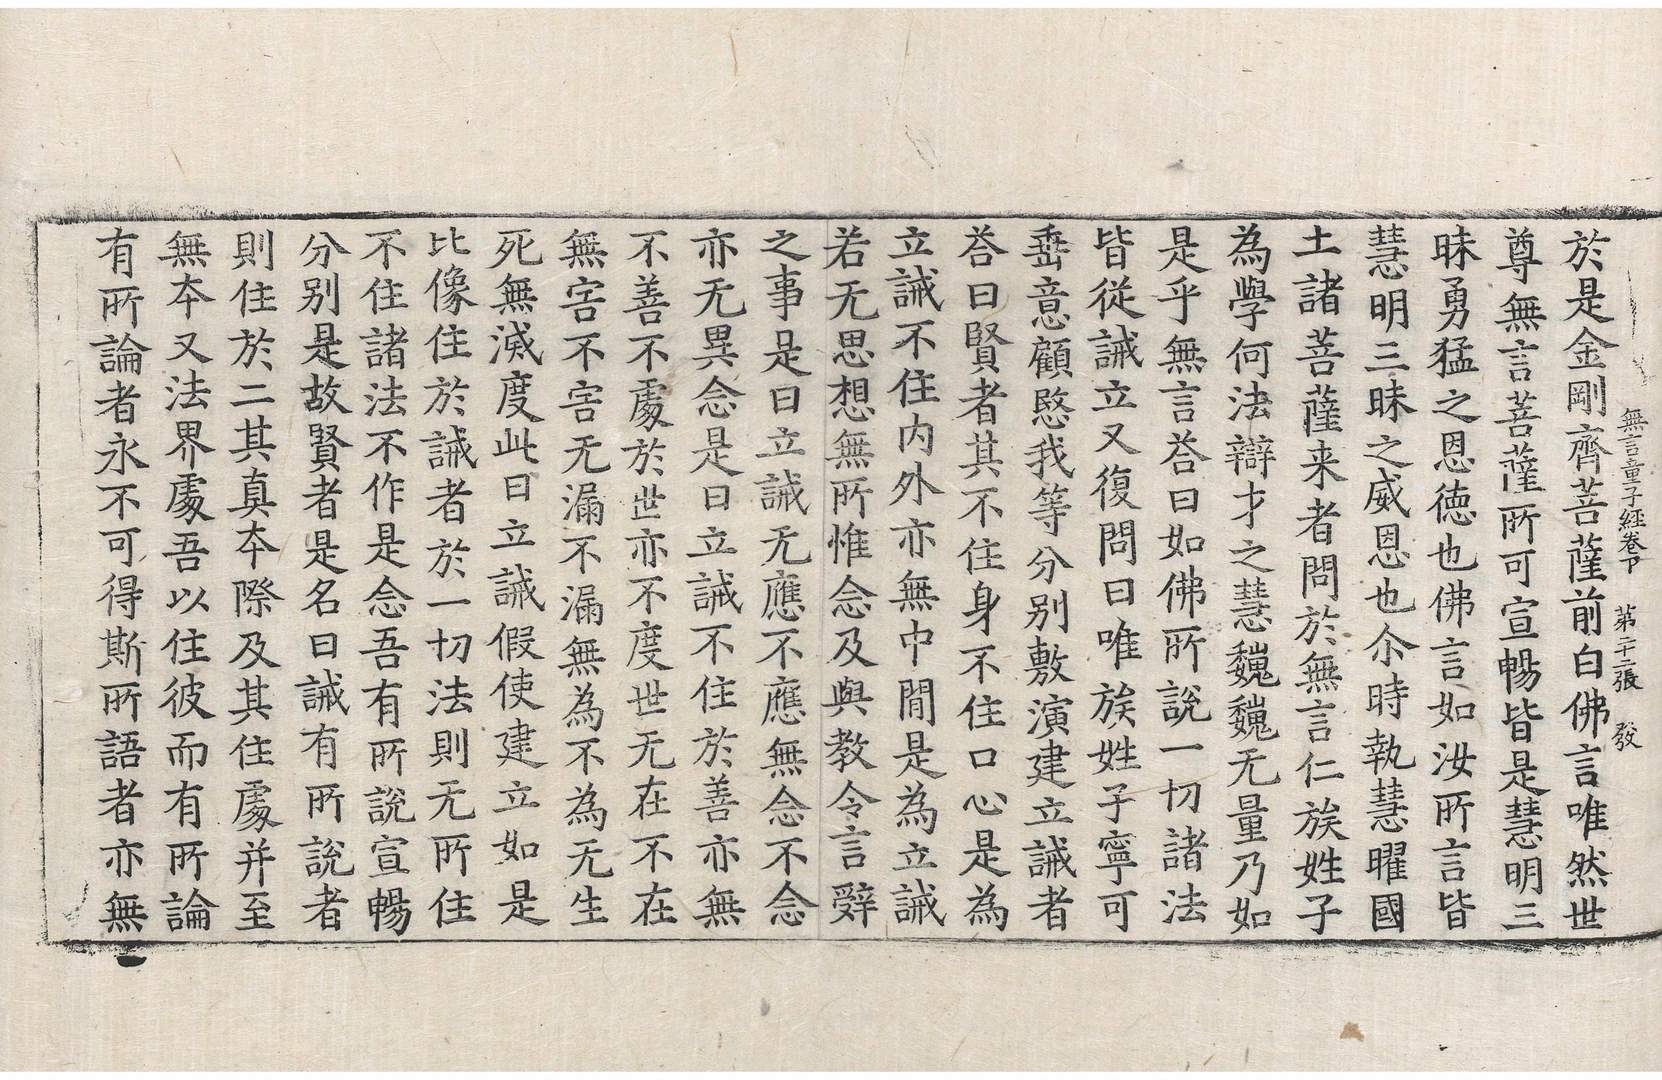 無言童子經卷下 第二十二張 發
於是金剛齊菩薩前白佛言唯然世
尊無言菩薩所可宣暢皆是慧明三
昧勇猛之恩德也佛言如汝所言皆
慧明三昧之威恩也尒時執慧曜國
土諸菩薩来者問於無言仁族姓子
為學何法辯才之慧巍巍无量乃如
是乎無言荅曰如佛所說一切諸法
皆從誡立又復問曰唯族姓子寧可
垂意顧愍我等分別敷演建立誡者
荅曰賢者其不住身不住口心是為
立誡不住內外亦無中間是為立誡
若无思想無所惟念及與教令言辭
之事是曰立誡无應不應無念不念
亦无異念是曰立誡不住於善亦無
不善不處於世亦不度世无在不在
無害不害无漏不漏無為不為无生
死無滅度此曰立誡假使建立如是
比像住於誡者於一切法則无所住
不住諸法不作是念吾有所說宣暢
分別是故賢者是名曰誡有所說者
則住於二其真本際及其住處并至
無本又法界處吾以住彼而有所論
有所論者永不可得斯所語者亦無